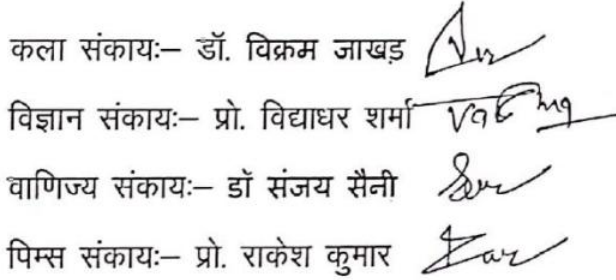 कला संकायः– डॉ. विक्रम जाखड़
विज्ञान संकायः– प्रो. विद्याधर शर्मा
वाणिज्य संकायः– डॉ संजय सैनी
पिम्स संकायः– प्रो. राकेश कुमार